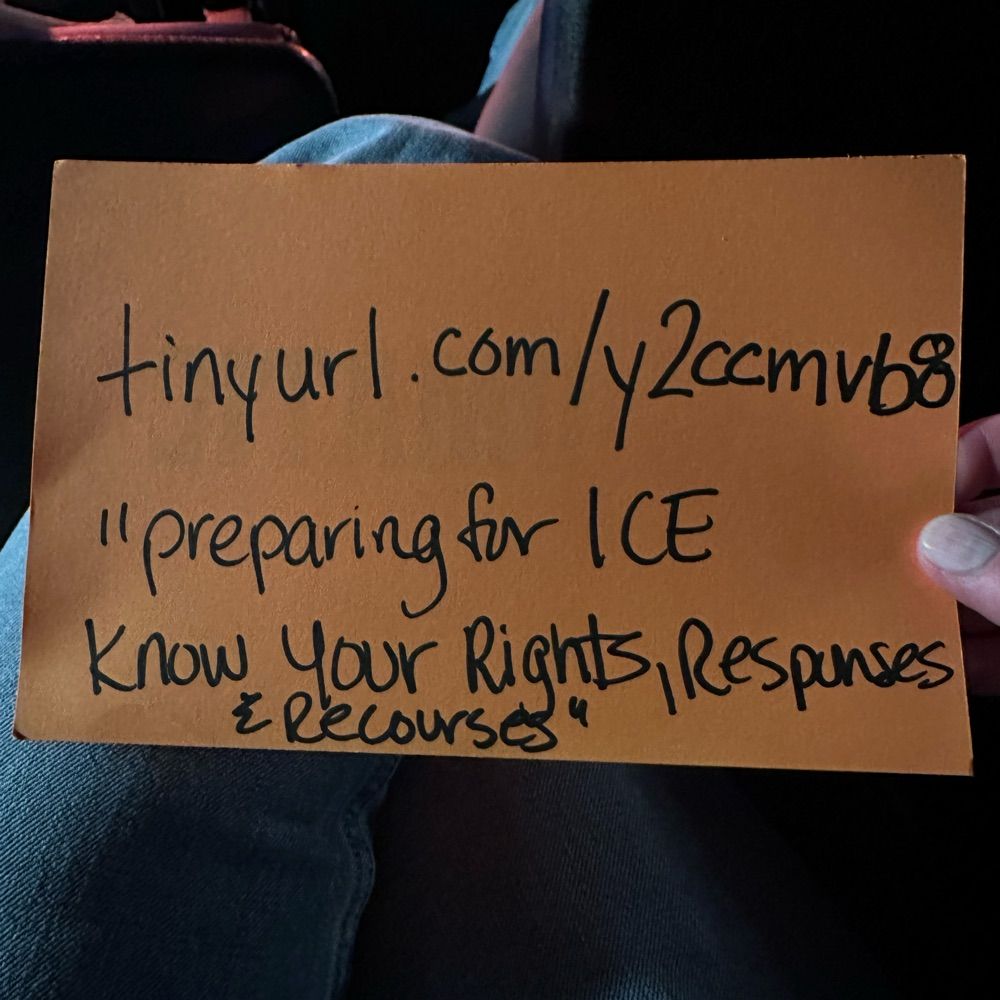 tinyurl.com/y2ccmvb8
"preparing for ICE
Know Your Rights, Responses
& Recourses"